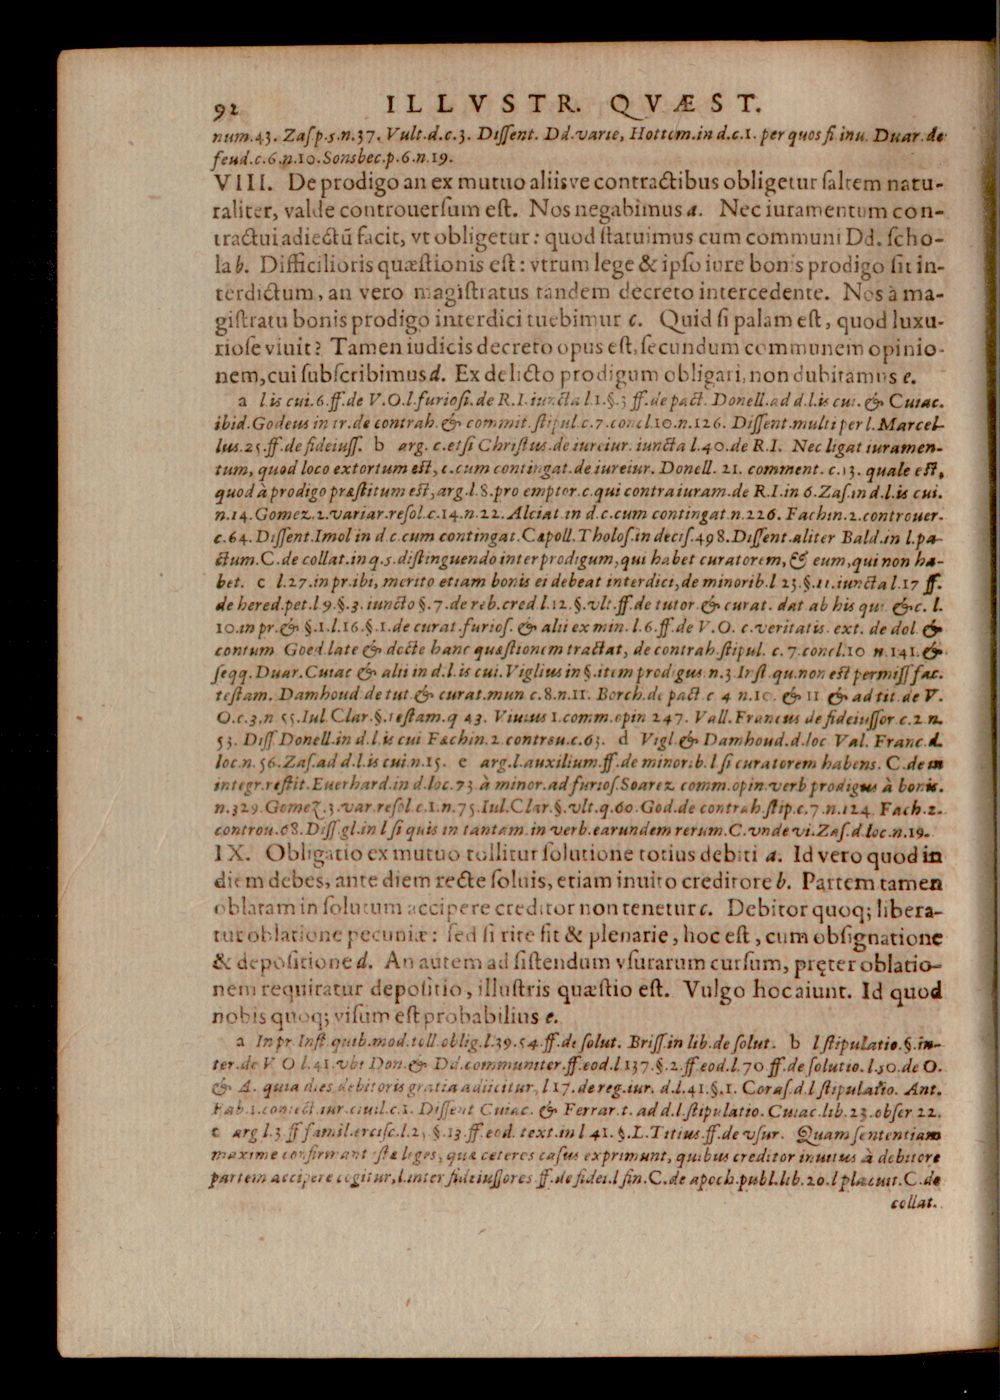 92 ILLVSTR. QVÆST.
num.43. Zasp.s.n.37. Vult.d.c.3. Dissent. Dd.varie, Hottom.in d.c.1. per quos si inu. Duar.de
feud.c.6.n.10.Sonsbec.p.6.n.19.
VIII. De prodigo an ex mutuo aliisve contractibus obligetur saltem natu-
raliter, valde controuersum est. Nos negabimus a. Nec iuramentum con-
tractui adiectũ facit, vt obligetur: quod statuimus cum communi Dd. scho-
la b. Difficilioris quæstionis est: vtrum lege & ipso iure bonis prodigo sit in-
terdictum, an vero magistratus tandem decreto intercedente. Nos à ma-
gistratu bonis prodigo interdici tuebimur c. Quid si palam est, quod luxu-
riose viuit? Tamen iudicis decreto opus est, secundum communem opinio-
nem, cui subscribimus d. Ex delicto prodigum obligari, non dubitamus e.
a l is cui.6.ff.de V.O.l.furiosi.de R.I.iuncta l.1.§.3 ff.de pact. Donell.ad d.l.is cui. & Cuiac.
ibid.Godeus in tr.de contrah.& commit.stipul.c.7.concl.10.n.126. Dissent.multi per l.Marcel-
lus.25.ff.de fideiuss. b arg. c.etsi Christus.de iureiur. iuncta l.40.de R.I. Nec ligat iuramen-
tum, quod loco extortum est, c.cum contingat.de iureiur. Donell. 21. comment. c.13. quale est,
quod à prodigo præstitum est, arg.l.8.pro emptor.c.qui contra iuram.de R.I.in 6.Zas.in d.l.is cui.
n.14.Gomez.2.variar.resol.c.14.n.22. Alciat.in d.c.cum contingat.n.226. Fachin.2.controuer.
c.64. Dissent.Imol in d.c.cum contingat.Capoll.Tholos.in decis.498.Dissent.aliter Bald.in l.pa-
ctum.C.de collat.in q.5.distinguendo inter prodigum, qui habet curatorem, & eum, qui non ha-
bet. c l.27.in pr.ibi, merito etiam bonis ei debeat interdici, de minorib.l 25.§.11.iuncta l.17 ff.
de hered.pet.l 9.§.3. iuncto §.7.de reb.cred l.12.§.vlt.ff.de tutor.& curat. dat ab his qui &c. l.
10.in pr.& §.1.l.16.§.1.de curat.furios. & alii ex min. l.6.ff.de V.O. c.veritatis. ext. de dol &
contum Goed late & docte hanc quæstionem tractat, de contrah.stipul. c.7.concl.10 n.141.&
seqq. Duar.Cuiac & alii in d.l.is cui.Viglius in §.item prodigus.n.3 Inst.qu.non est permiss fac.
testam. Damhoud de tut.& curat.mun c.8.n.11. Borch.de pact c 4 n.10. & 11 & ad tit.de V.
O.c.3.n 55.Iul Clar.§.testam.q 43. Viuius 1.comm.opin 247. Vall.Francus de fideiussor.c.2 n.
53. Diss Donell.in d.l.is cui Fachin.2 controu.c.63. d Vigl.& Damhoud.d.loc Val. Franc.d.
loc.n.56.Zas.ad d.l.is cui.n.15. e arg.l.auxilium.ff.de minorib.l si curatorem habens. C.de in
integr.restit.Euerhard.in d.loc.73 à minor.ad furios.Soarez comm.opin.verb prodigus à bonis.
n.329.Gomez.3.var.resol.c.1.n.75.Iul.Clar.§.vlt.q.60.God.de contrah.stip.c.7.n.124. Fach.2.
controu.68.Diss.gl.in l si quis in tantam.in verb.earundem rerum.C.vnde vi.Zas.d.loc.n.19.
IX. Obligatio ex mutuo tollitur solutione totius debiti a. Id vero quod in
diem debes, ante diem recte soluis, etiam inuito creditore b. Partem tamen
oblatam in solutum accipere creditor non tenetur c. Debitor quoq; libera-
tur oblatione pecuniæ: sed si rite fit & plenarie, hoc est, cum obsignatione
& depositione d. An autem ad sistendum vsurarum cursum, pręter oblatio-
nem requiratur depositio, illustris quæstio est. Vulgo hoc aiunt. Id quod
nobis quoq; visum est probabilius e.
a In pr. Inst quib.mod.toll.oblig.l.39.54.ff.de solut. Briss.in lib.de solut. b l stipulatio.§.in-
ter.de V O l.41.vbi Don.& Dd.communiter.ff.eod.l 137.§.2.ff.eod.l.70 ff.de solutio.l.50.de O.
& A. quia dies debitoris gratia adiicitur, l 17.de reg.iur. d.l.41.§.1. Coras.d.l stipulatio. Ant.
Fab.1.coniect.iur.ciuil.c.1. Dissent Cuiac. & Ferrar.t. ad d.l.stipulatio. Cuiac.lib.23.obser 22.
c arg l.3 ff famil.ercisc.l.2, §.13.ff.eod. text.in l 41. §.L.Titius.ff.de vsur. Quam sententiam
maxime confirmant istæ leges, quæ ceteros casus exprimunt, quibus creditor inuitus à debitore
partem accipere cogitur, l.inter fideiussores.ff.de fidei.l fin.C.de apoch.publ.lib.20.l placuit.C.de
collat.